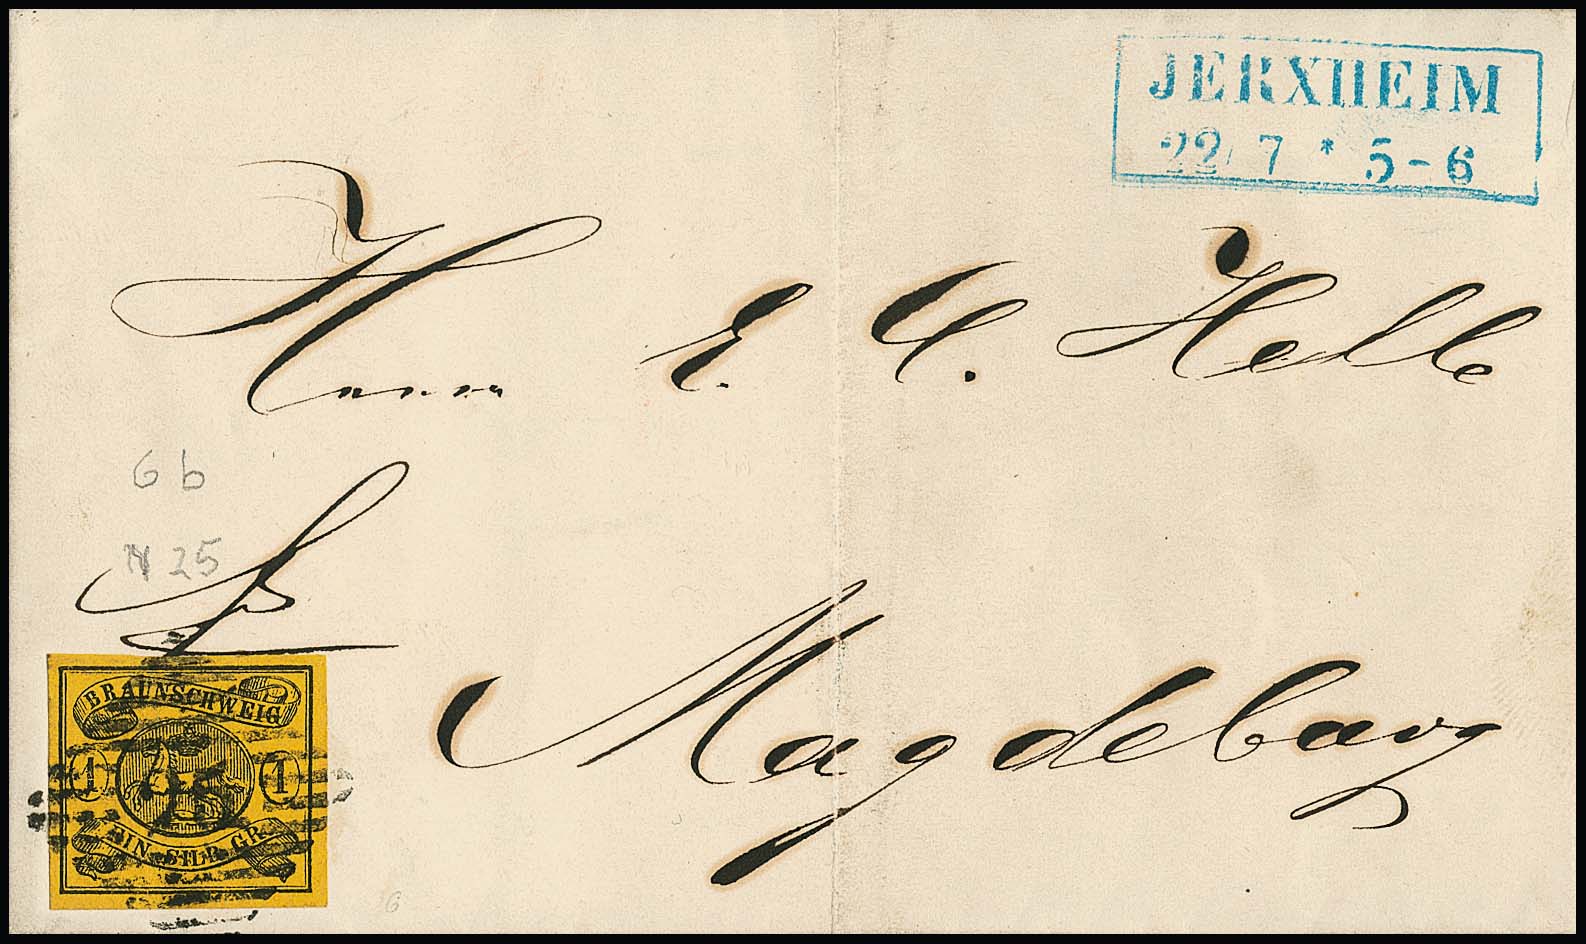 JERXHEIM
22 7 * 5-6
Herrn E. A. Helle
6 b
N 25
Magdeburg
BRAUNSCHWEIG
1 1
EIN SILB. GR.
6